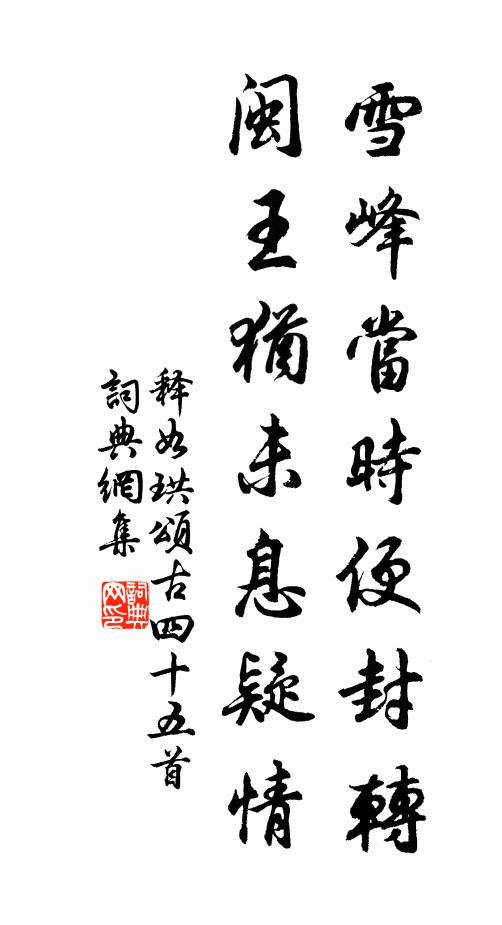 雪峰當時便封轉
閩王猶未息疑情
释如珙頌古四十五首
詞典網集
詞典
网印